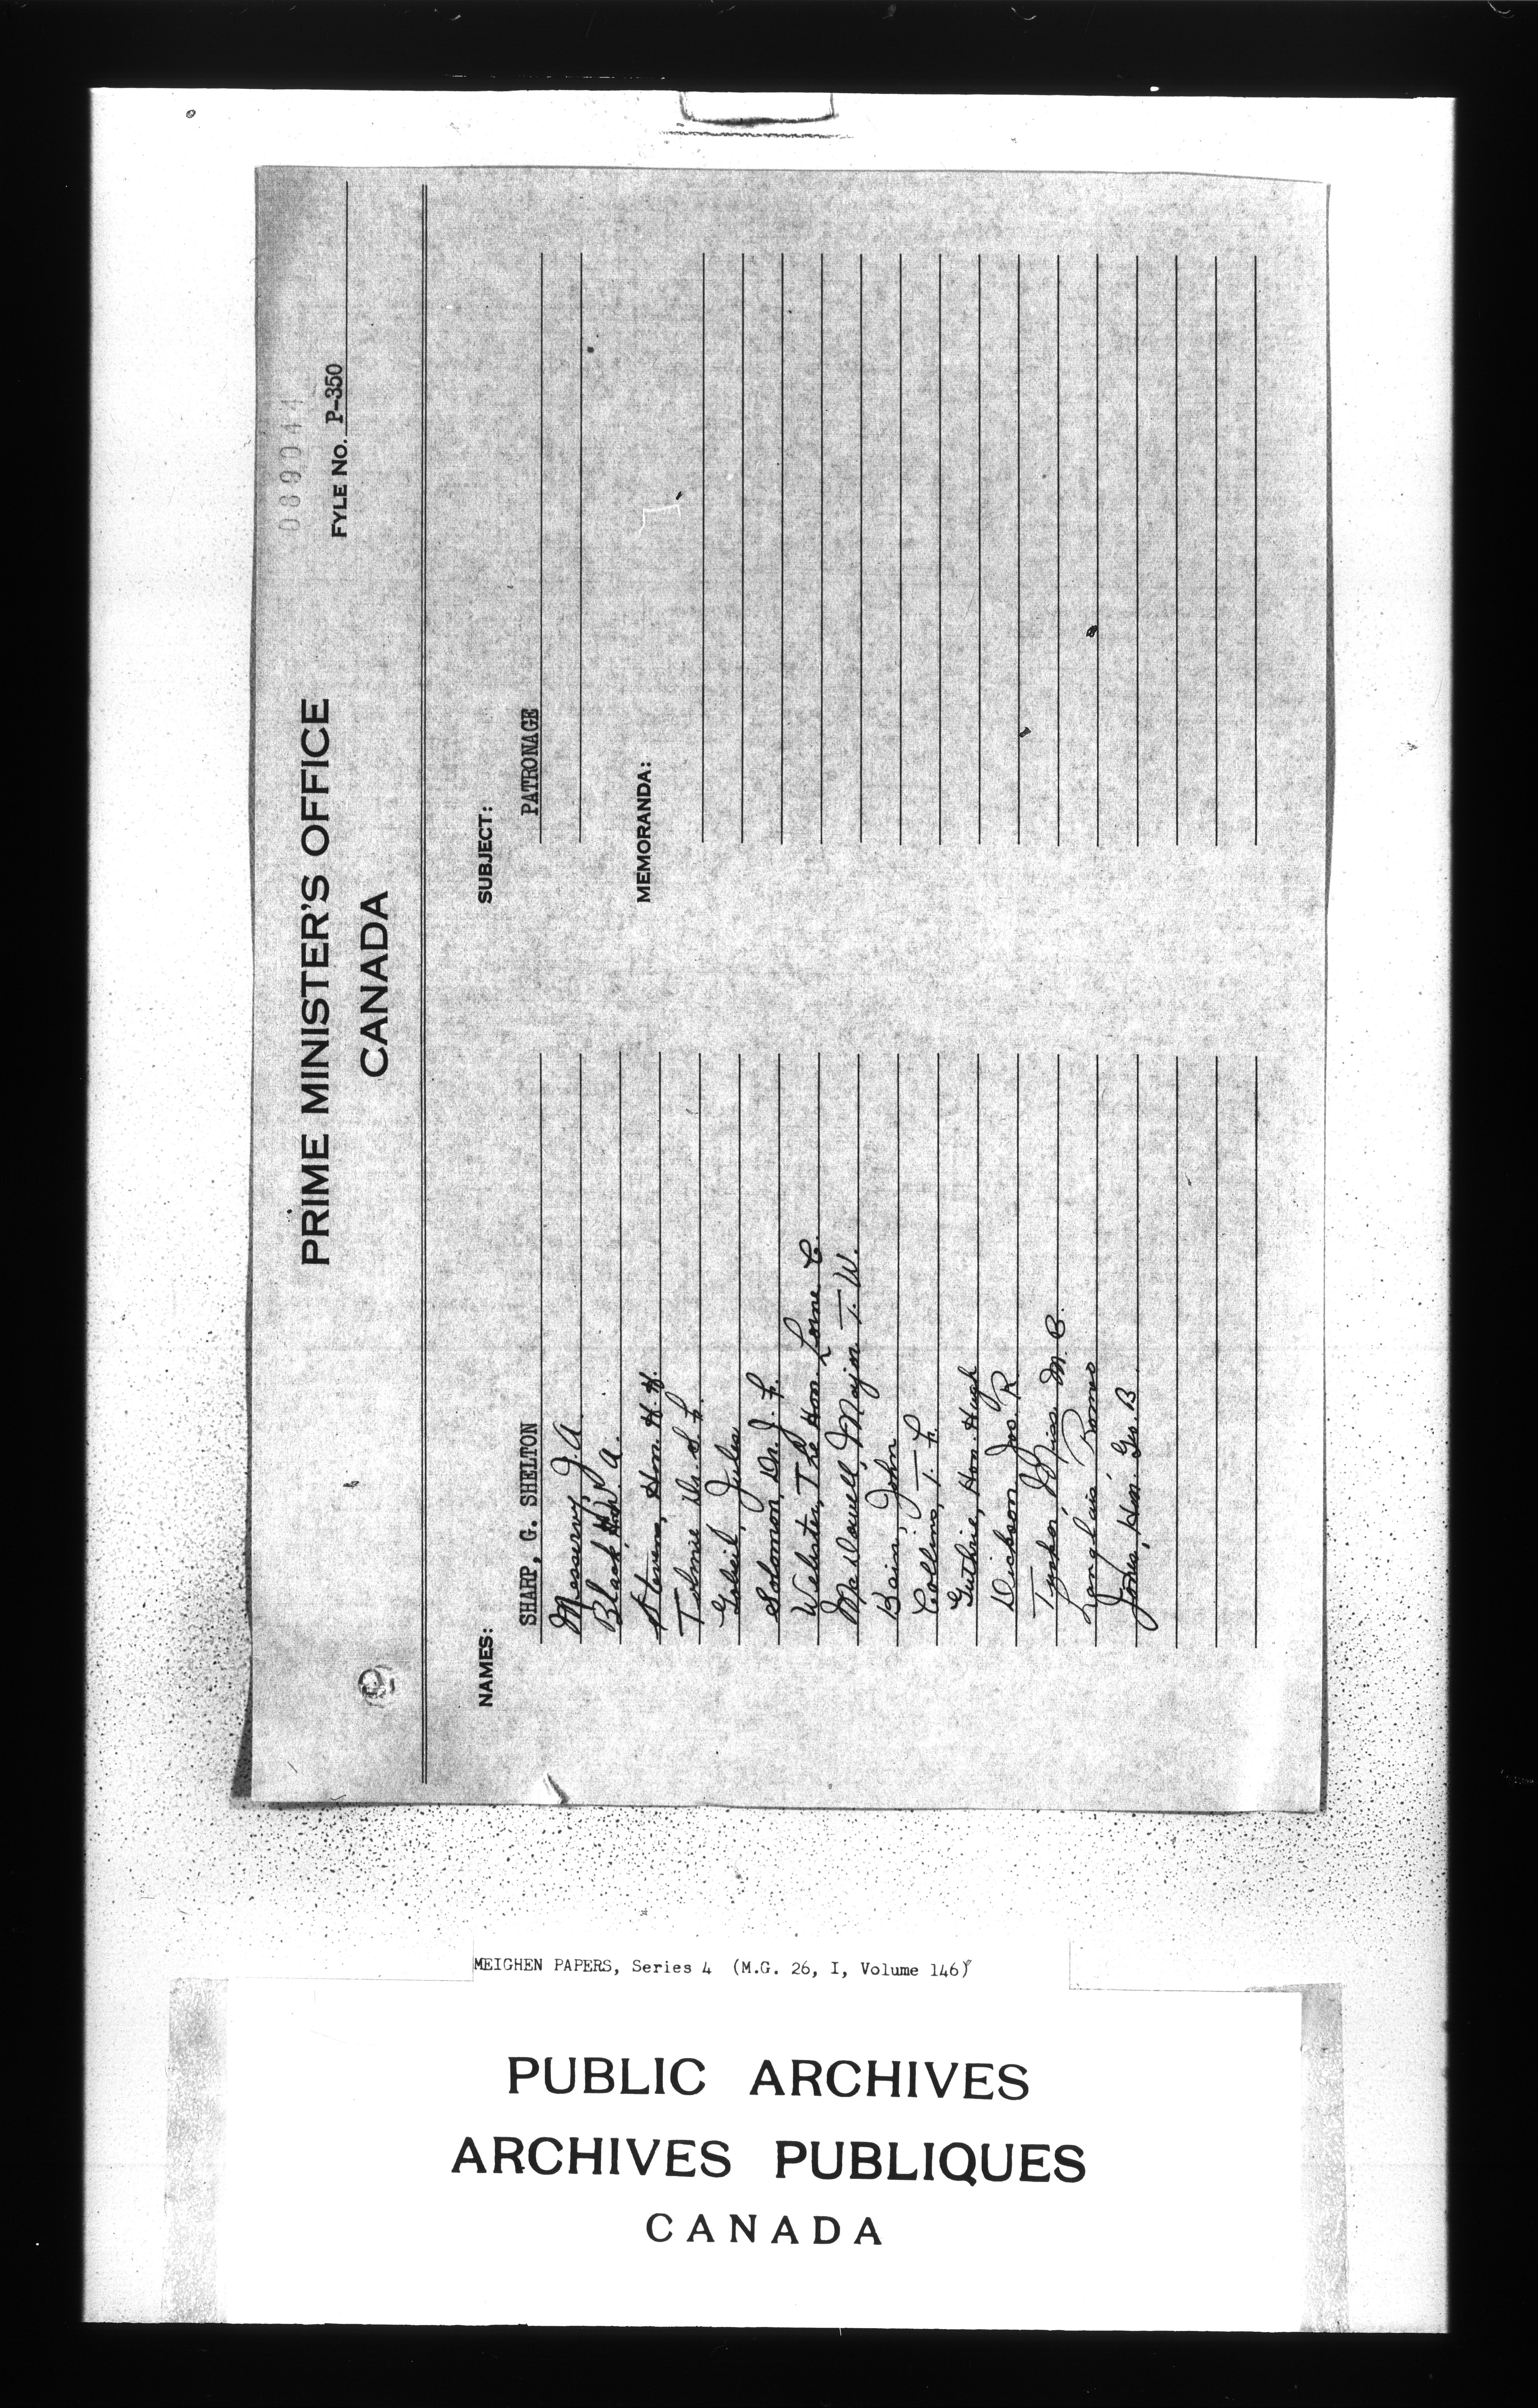 089044
FYLE NO. P-350
PRIME MINISTER'S OFFICE
CANADA
NAMES:
SHARP, G. SHELTON
Messervy, J. A.
Black, W. A.
Stevens, Hon. H. H.
Tolmie Dr. S. F.
Gobeil, Jules
Solomon, Dr. J. F.
Webster, The Hon. Lorne C.
MacDowell, Major T. W.
Bain, John
Collins, T. F.
Guthrie, Hon. Hugh
Dickson, Jos R
Miss M. C.
Langlais, Romeo
Jones, Hon. Geo. B.
SUBJECT:
PATRONAGE
MEMORANDA:
MEIGHEN PAPERS, Series 4 (M.G. 26, I, Volume 146)
PUBLIC ARCHIVES
ARCHIVES PUBLIQUES
CANADA